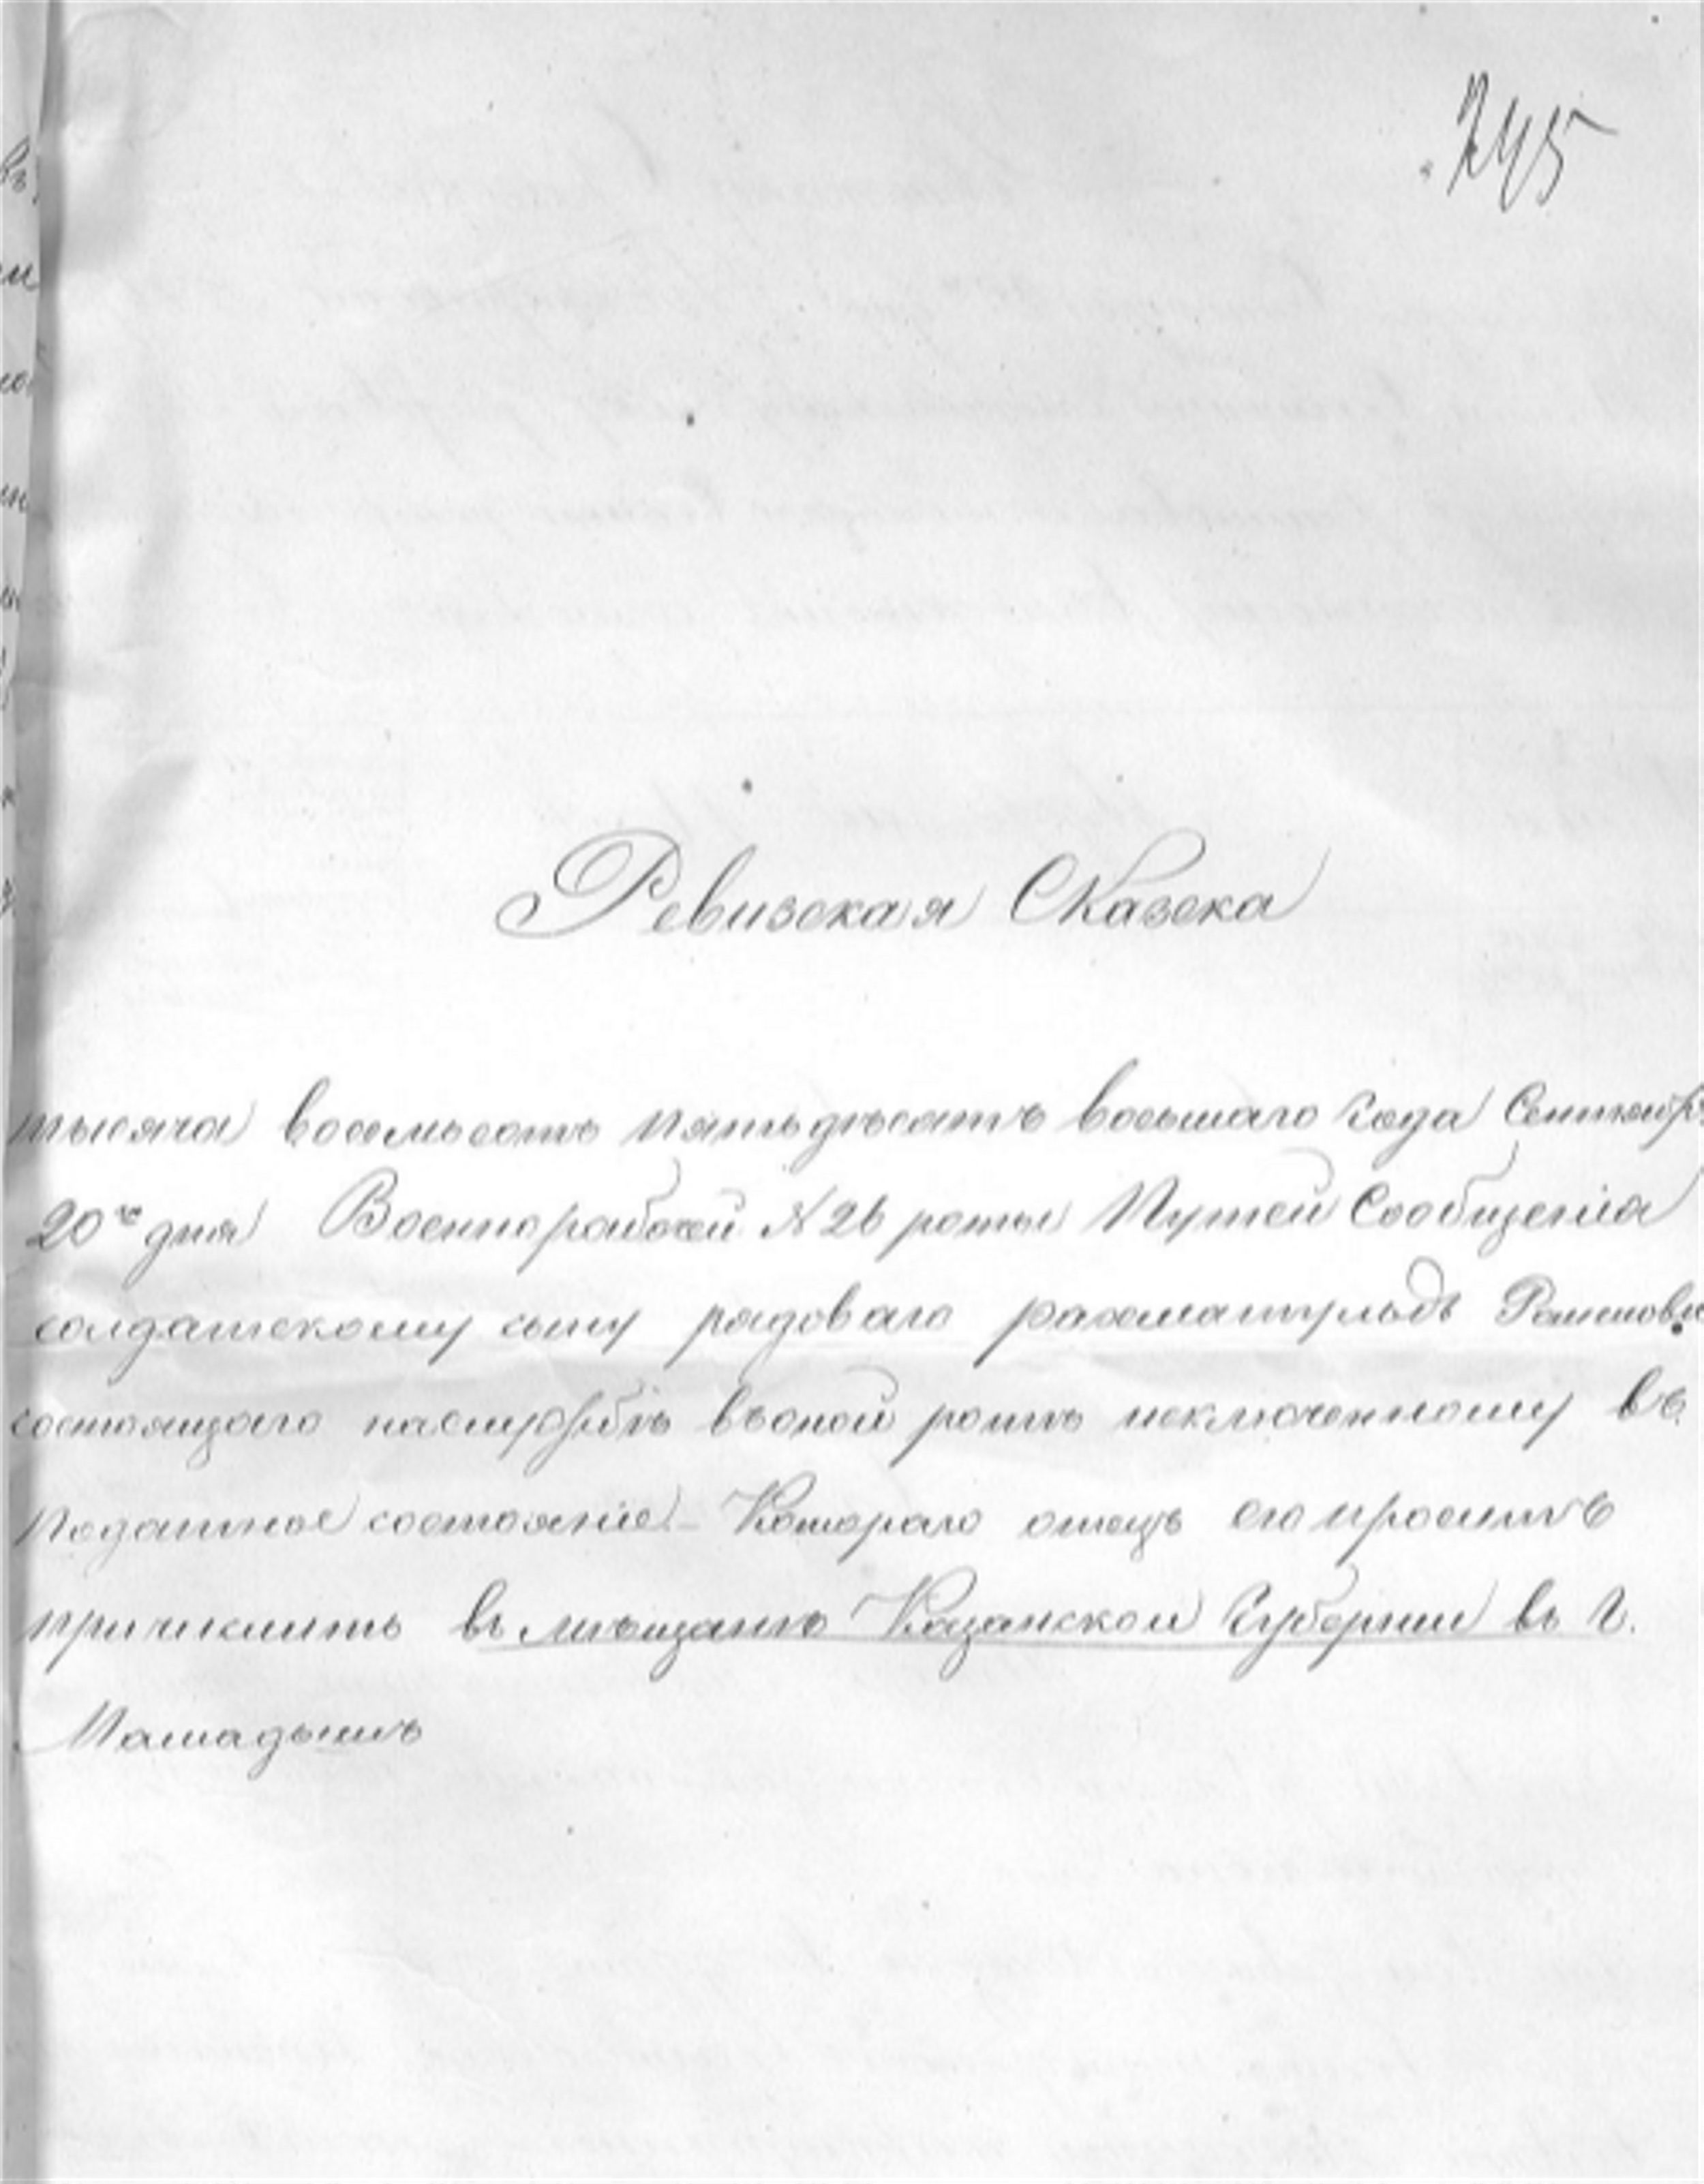 745
Ревизская Сказска
тысяча восемьсотъ пятьдѣсятъ восьмаго года Сентябр
20го дня Военнорабочей №26 роты Путей Сообщенія
солдатскому сыну рядоваго
состоящаго наслужбѣ въоной ротѣ исключенному въ
Податное состояніе – Котораго отецъ его проситъ
причислить въ мѣщанѣ Казанской Губернии въ г.